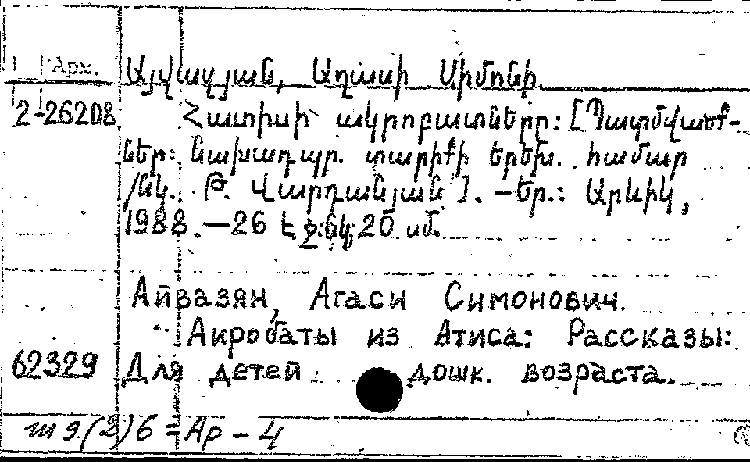 Арм. Այվազյան, Աղասի Սիմոնի
2-26208 Հատիսի ակրոբատները: [Պատմվածք-
ներ: Նախադպր. տարիքի երեխ. համար
/նկ. Թ. Վարդանյան]. -Եր.: Արևիկ,
1988.-26 էջ: նկ; 20 սմ.
Айвазян, Агаси Симонович.
Акробаты из Атиса: Рассказы:
62329 Для детей дошк. возраста.
ш 9(2)6=Ар-4